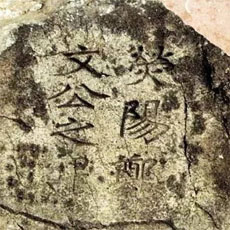 熒陽鄭
文公之